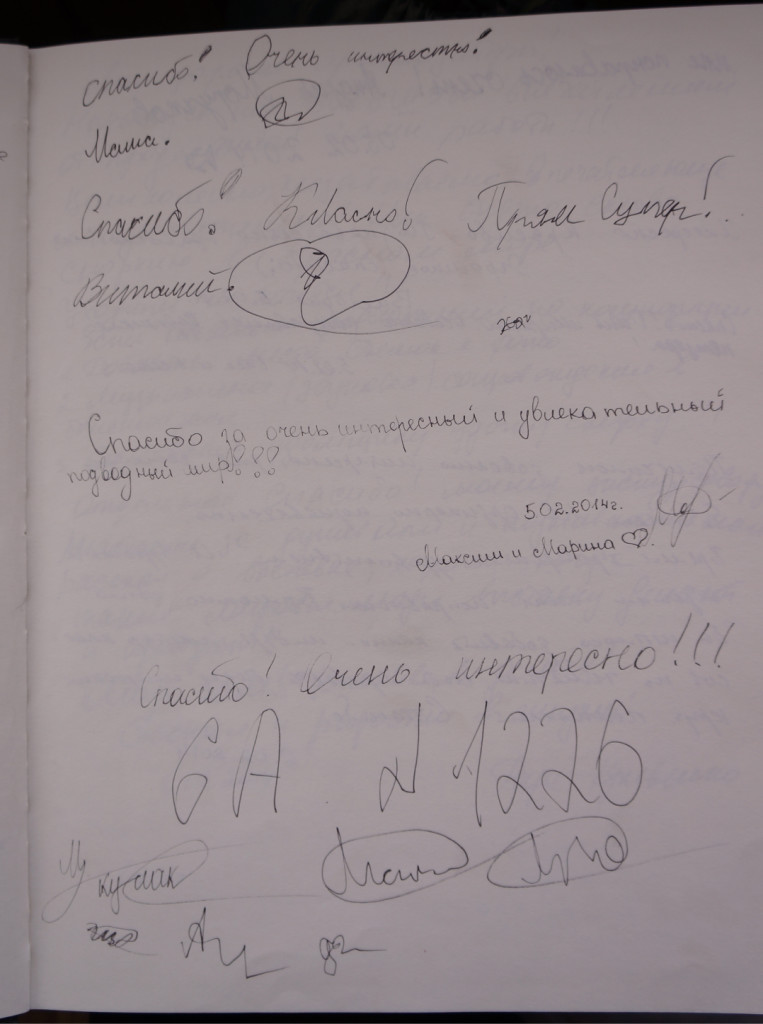 Спасибо! Очень интерестно!
Маша.
Спасибо! Классно! Прям Супер!..
Виталий.
Спасибо за очень интересный и увлекательный
подводный мир!!!
5.02.2014г.
Максим и Марина ♡.
Спасибо! Очень интересно!!!
6А №1226